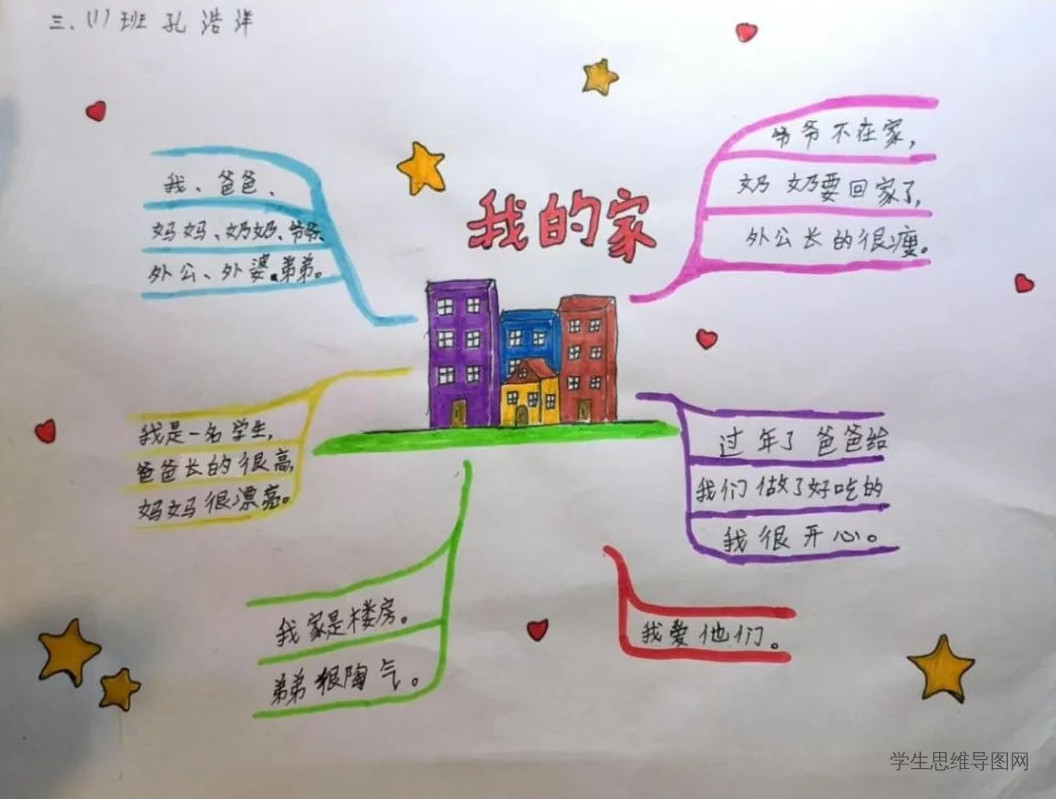 三、(1)班 孔浩洋
我的家
我、爸爸、
妈妈、奶奶、爷爷、
外公、外婆、弟弟。
爷爷不在家,
奶奶要回家了,
外公长的很瘦。
我是一名学生,
爸爸长的很高,
妈妈很漂亮。
过年了爸爸给
我们做了好吃的
我很开心。
我家是楼房。
弟弟很陶气。
我爱他们。
学生思维导图网